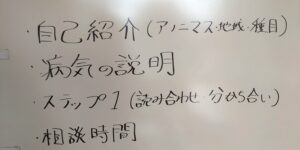 ・自己紹介(アノニマス・地域・種目)
・病気の説明
・ステップ1(読み合わせ 分かち合い)
・相談時間